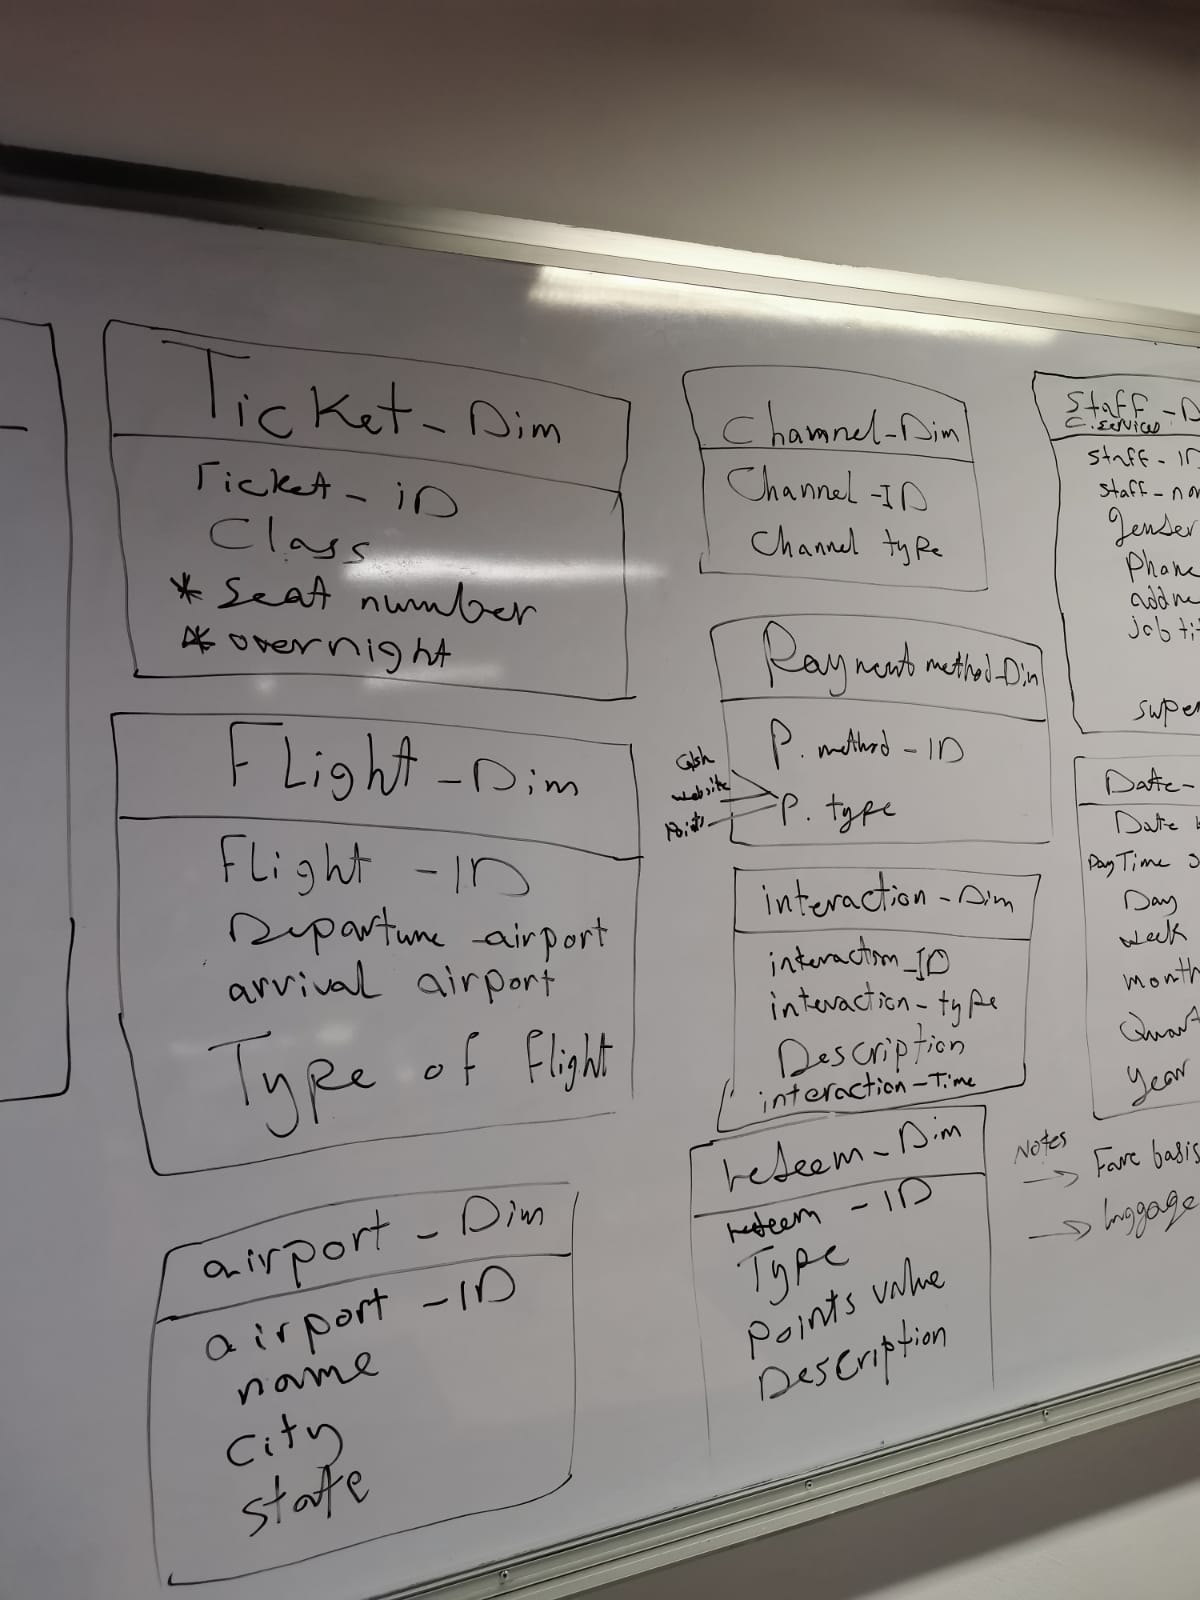 Ticket_Dim
Ticket_iD
Class
* Seat number
* overnight
Flight_Dim
Flight_ID
Departure_airport
arrival airport
Type of flight
airport_Dim
airport_ID
name
city
state
Channel_Dim
Channel_ID
Channel type
Payment method_Dim
P. method_ID
Cash
website
Points
P. type
interaction_Dim
interaction_ID
interaction_type
Description
interaction_Time
redeem_Dim
redeem_ID
Type
Points value
Description
Staff_D
C.services
Staff_ID
Staff_
Gender
Phone
job
super
Date_
Date
Day
week
month
year
Notes
→ Fare basis
→ luggage